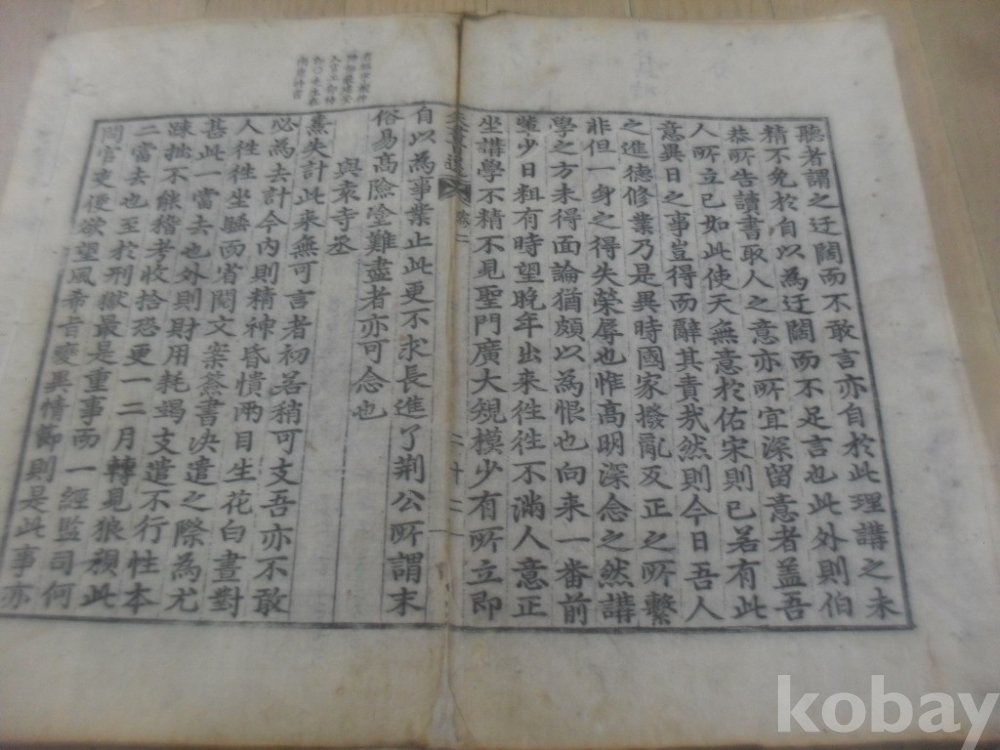 聽者謂之迂闊而不敢言亦自於此理講之未
精不免於自以爲迂闊而不足言也此外則伯
恭所告讀書取人之意亦所宜深留意者蓋吾
人所立已如此使天無意於佑宋則已若有此
意異日之事豈得而辭其責哉然則今日吾人
之進德修業乃是異時國家撥亂反正之所繫
非但一身之得失榮辱也惟高明深念之然講
學之方未得面論猶頗以爲恨也向來一番前
輩少日粗有時望晚年出來徃徃不滿人意正
坐講學不精不見聖門廣大規模少有所立即
二十二
自以爲事業止此更不求長進了荊公所謂末
俗易高險塗難盡者亦可念也
與袁寺丞
熹失計此來無可言者初若稍可支吾亦不敢
必爲去計今內則精神昏憒兩目生花白晝對
人徃徃坐睡而省閱文案簽書决遣之際爲尤
甚此一當去也外則財用耗竭支遣不行性本
踈拙不能稽考收拾恐更一二月轉見狼狽此
二當去也至於刑獄最是重事而一經監司何
問官吏便欲望風希旨變異情節則是此事亦
kobay